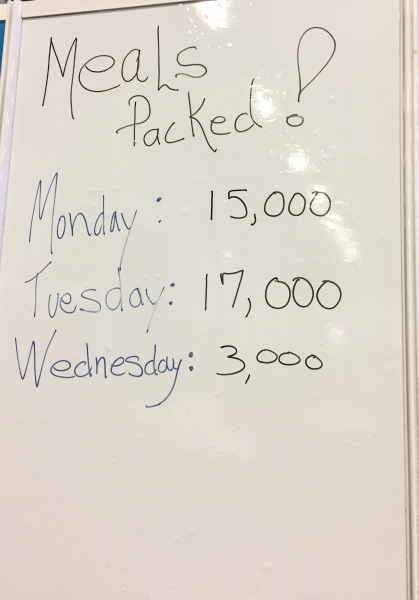 Meals
Packed!
Monday: 15,000
Tuesday: 17,000
Wednesday: 3,000